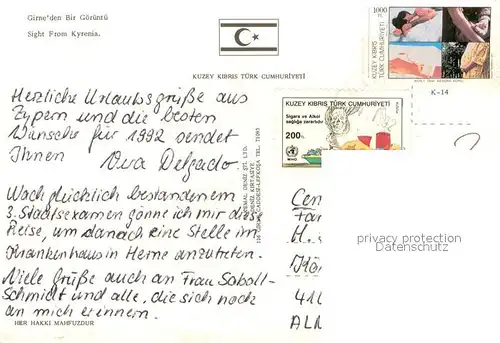 Girne'den Bir Görüntü
Sight From Kyrenia.
KUZEY KIBRIS TÜRK CUMHURİYETİ
1000
KUZEY KIBRIS
TÜRK CUMHURİYETİ
K-14
KUZEY KIBRIS TÜRK CUMHURİYETİ
Sigara ve Alkol
sağlığa zararlıdır
200
WHO
Herzliche Urlaubsgrüße aus
Zypern und die besten
Wünsche für 1992 sendet
Ihnen Ova Delgado.
Nach glücklich bestandenem
3. Staatsexamen gönne ich mir diese
Reise, um danach eine Stelle im
Krankenhaus in Herne anzutreten.
Viele Grüße auch an Frau Sobott-
Schmidt und alle, die sich noch
an mich erinnern.
HER HAKKI MAHFUZDUR
Cen
H.
410
AL
privacy protection
Datenschutz